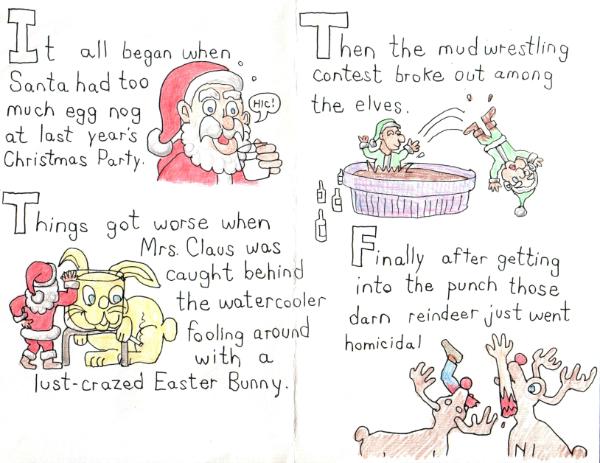 It all began when
Santa had too
much egg nog
at last year's
Christmas Party.
HIC!
Things got worse when
Mrs. Claus was
caught behind
the watercooler
fooling around
with a
lust-crazed Easter Bunny.
Then the mud wrestling
contest broke out among
the elves.
Finally after getting
into the punch those
darn reindeer just went
homicidal